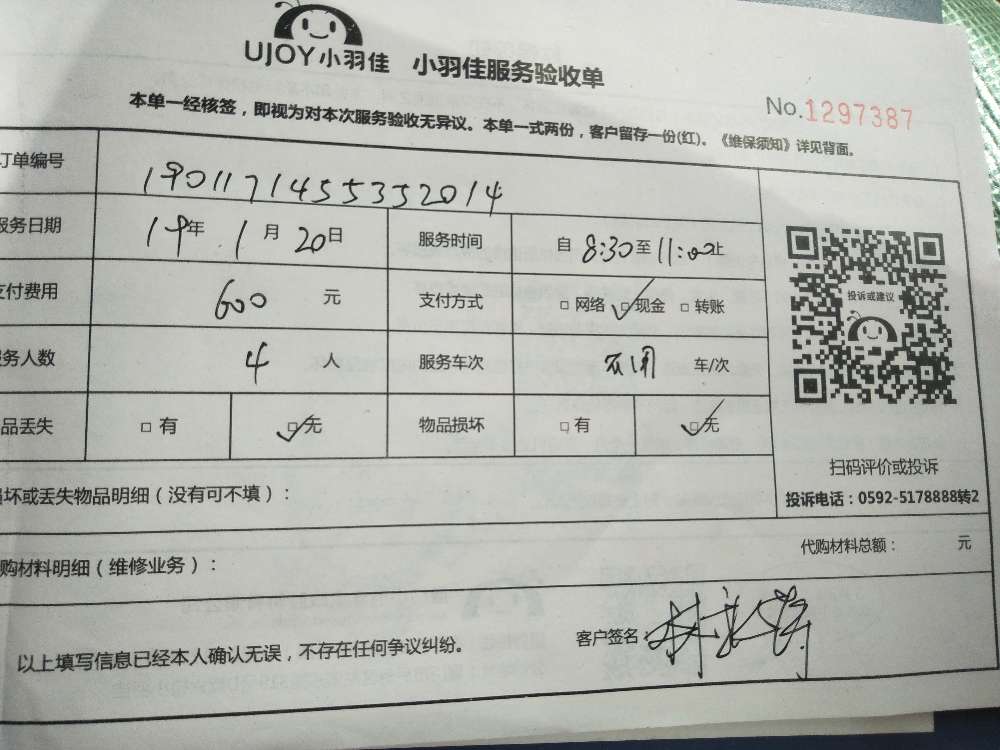 UJOY小羽佳 小羽佳服务验收单
No.1297387
本单一经核签，即视为对本次服务验收无异议。本单一式两份，客户留存一份(红)。《维保须知》详见背面。
订单编号 190117145535 2014
服务日期 19年 1月 20日 服务时间 自 8:30至 11:00止
支付费用 600 元 支付方式 □网络 □✓现金 □转账
服务人数 4 人 服务车次 车/次
品丢失 □有 □✓无 物品损坏 □有 □✓无
投诉或建议
扫码评价或投诉
投诉电话：0592-5178888转2
坏或丢失物品明细（没有可不填）：
购材料明细（维修业务）： 代购材料总额： 元
以上填写信息已经本人确认无误，不存在任何争议纠纷。 客户签名：